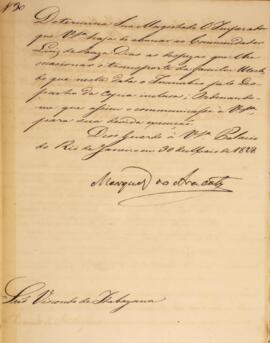 Nº 30
Determina Sua Magestade O Imperador
que VSª haja de abonar ao Commendador
Luiz de Souza Dias as despezas que
o transporte da familia
de que nesta data o pelo Des-
pacho da Copia inclusa; Ordenando-
me que assim o communique a VSª
para sua devida execução.
Deos Guarde a VSª Palacio
do Rio de Janeiro em 30 de Maio de 1828
Marquez do Aracaty
Senr. Visconde de Itabayana